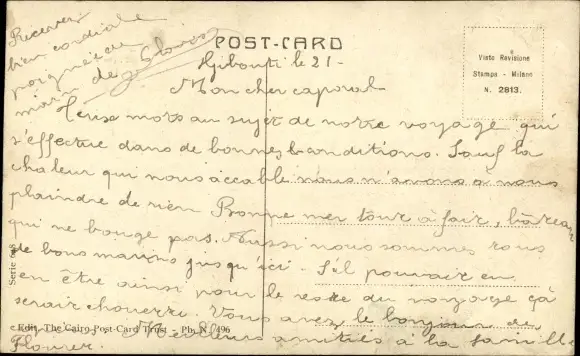 POST-CARD
Visto Revisione
Stampa - Milano
N. 2813.
Djibouti le 21-
Mon cher caporal
deux mots au sujet de notre voyage qui
s'effectue dans de bonnes conditions. Sauf la
chaleur qui nous accable nous n'avons à nous
plaindre de rien Bonne mer tout à fait, bateau
qui ne bouge pas. Aussi nous sommes tous
de bons marins jusqu'ici. S'il pouvait en
en être ainsi pour le reste du voyage ça
serait chouette. Vous avez le bonjour de
Meilleurs amitiés à la famille
Flouret.
Recevez
bien cordiale
poignée de
main de
Serie 608
Edit. The Cairo Post-Card Trust - Ph. N. 496